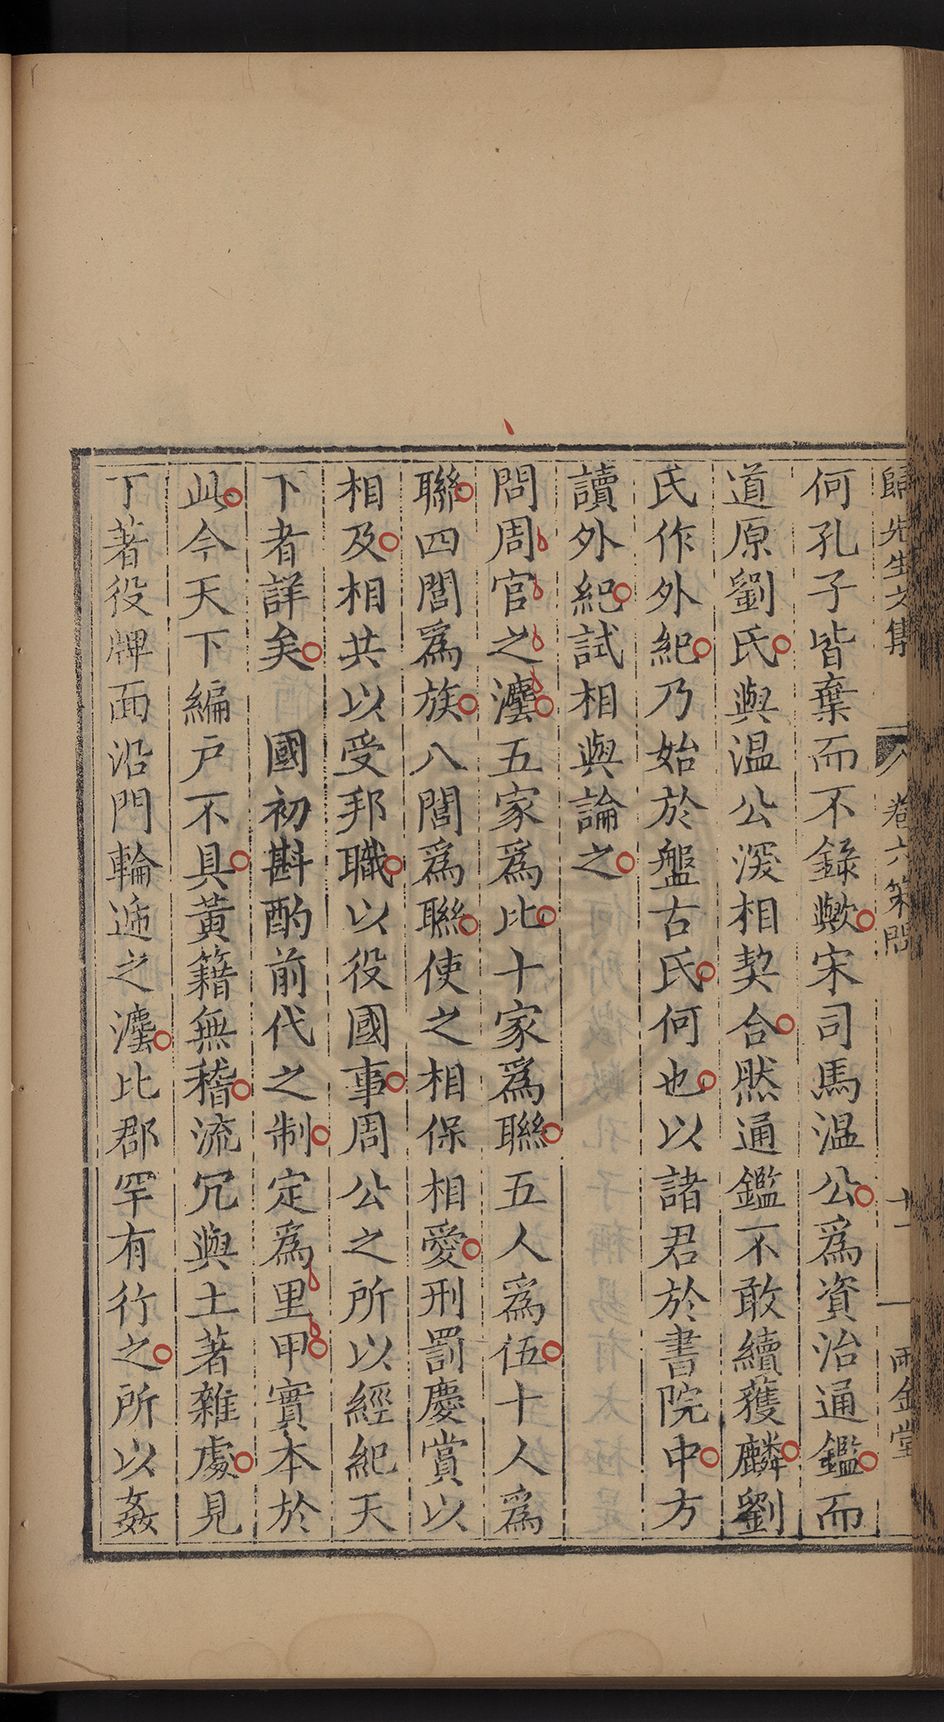 歸先生文集 卷六策問 十一 兩金堂
何孔子皆棄而不錄歟宋司馬溫公爲資治通鑑而
道原劉氏與温公深相契合然通鑑不敢續獲麟劉
氏作外紀乃始於盤古氏何也以諸君於書院中方
讀外紀試相與論之
問周官之灋五家爲比十家爲聯五人爲伍十人爲
聯四閭爲族八閭爲聯使之相保相愛刑罰慶賞以
相及相共以受邦職以役國事周公之所以經紀天
下者詳矣　國初斟酌前代之制定爲里甲實本於
此今天下編戶不具黃籍無稽流冗與土著雜處見
丁著役牌面沿門輪遞之灋比郡罕有行之所以姦